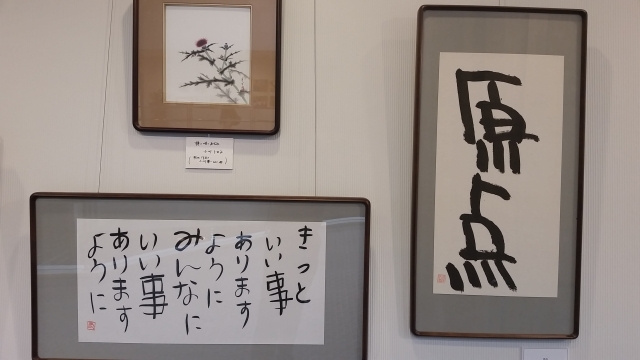 原点
きっと
いい事
あります
ように
みんなに
いい事
あります
ように